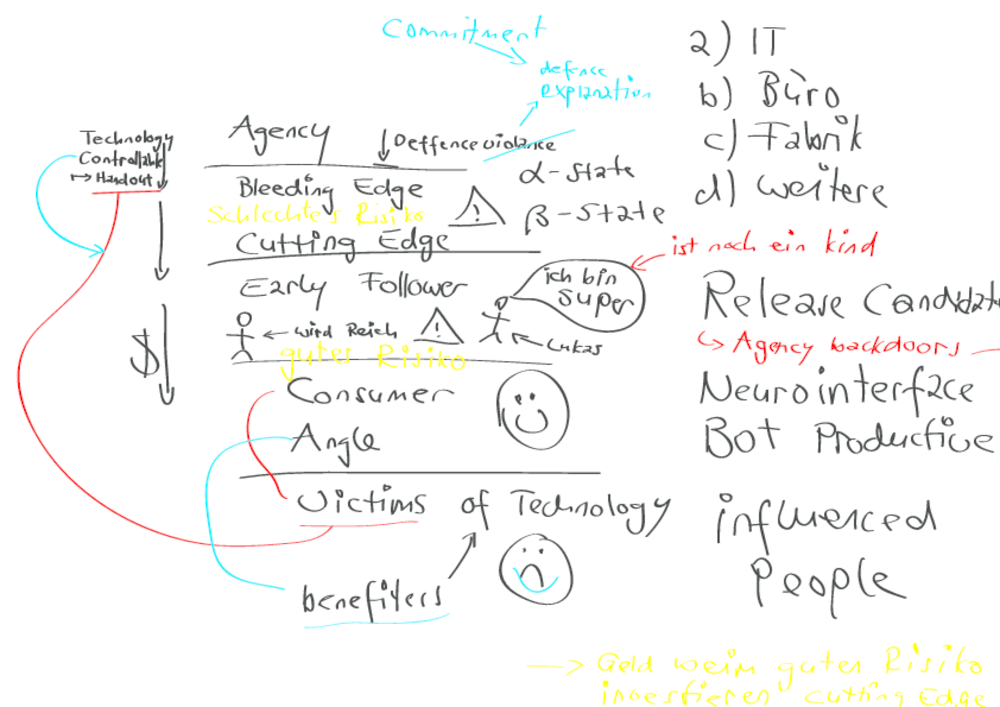 Commitment
defence
explanation
Technology
Controllable
↦ Handout
Agency
↓ Deffence violance
Bleeding Edge
α-State
Schlechtes Risiko
β-State
Cutting Edge
Early Follower
ich bin
super
ist noch ein kind
← wird Reich
Lukas
gutes Risiko
$
Consumer
Angle
Victims of Technology
benefiters
a) IT
b) Büro
c) Fabrik
d) weitere
Release Candidate
↳ Agency backdoors
Neurointerface
Bot Productive
influenced
People
→ Geld weim guten Risiko
investieren cutting Edge